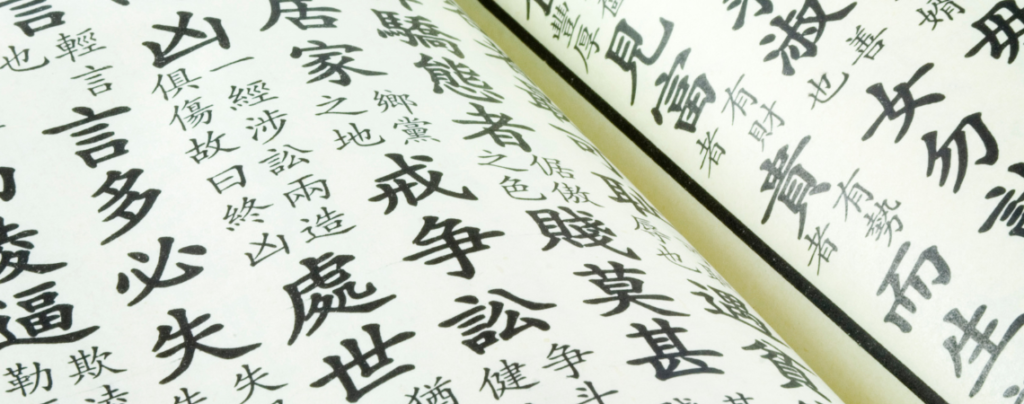 婿
毋
淑
善
也
女勿
見富
有財
者
貴
有勢
者
而生
驕態者
倨傲
之色
賤莫甚
居家
鄉黨
之地
戒爭訟
爭斗
健
凶
一經涉訟兩造
俱傷故曰終凶
處世
猶
言
輕言
也
言多必失
失
凌逼
欺凌
勒